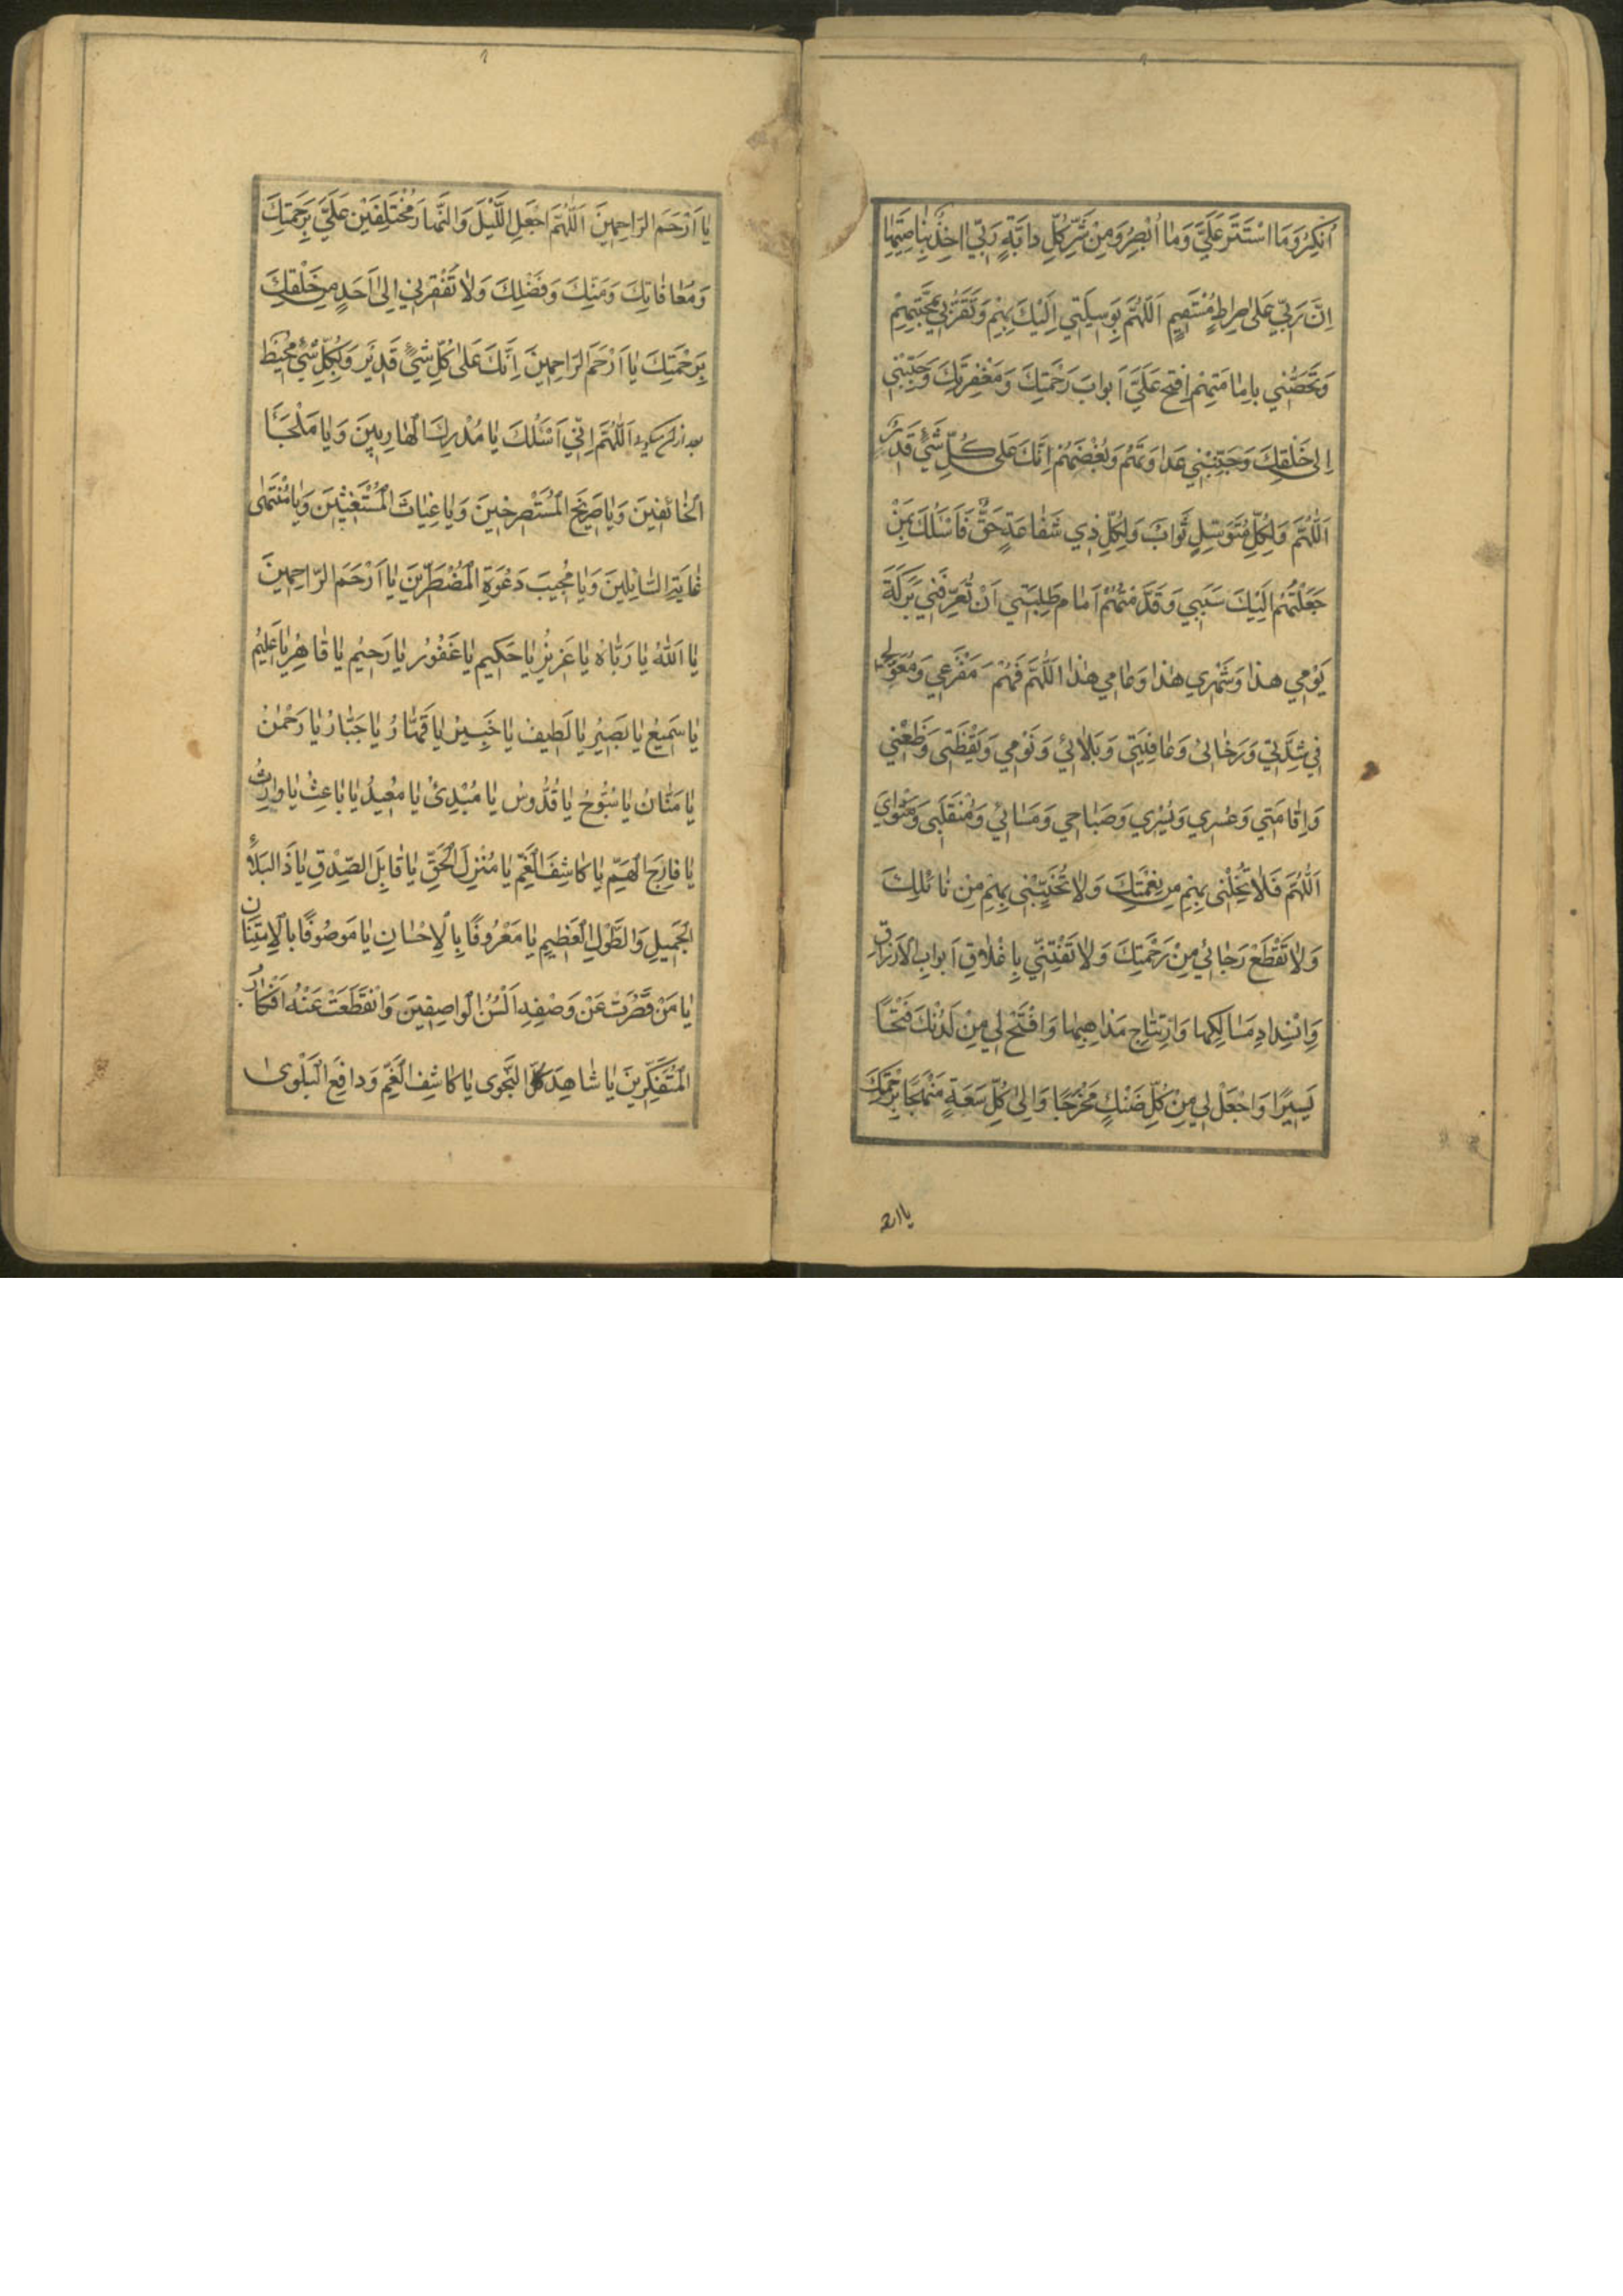 اُنْكِرُ وَمَا اسْتَتَرَ عَلَيَّ وَمٰا اُبْصِرُ وَمِنْ شَرِّ كُلِّ دابَّةٍ رَبّي اخِذٌ بِنٰاصِيَتِهٰا
اِنَّ رَبّي عَلىٰ صِراطٍ مُسْتَقيمٍ اَللّٰهُمَّ بِوَسيلَتي اِلَيْكَ بِهِمْ وَتَقَرُّبي بِمَحَبَّتِهِمْ
وَتَحَصُّني بِاِمٰامَتِهِمْ اِفْتَح عَلَيَّ اَبوابَ رَحْمَتِكَ وَمَغْفِرَتِكَ وَحَبِّبْني
اِلىٰ خَلْقِكَ وَجَنِّبْني عَداوَتَهُم وَبُغْضَهُمْ اِنَّكَ عَلىٰ كُلِّ شَيْءٍ قَديرٌ
اَللّٰهُمَّ وَلِكُلِّ مُتَوَسِّلٍ ثَوابٌ وَلِكُلِّ ذي شَفٰاعَةٍ حَقٌّ فَاَسْئَلُكَ بِمَنْ
جَعَلْتَهُمْ اِلَيْكَ سَبَبي وَقَدَّمْتُهُمْ اَمٰامَ طَلِبَتي اَنْ تُعَرِّفَني بَرَكَةَ
يَوْمي هذا وَشَهْري هٰذا وَعٰامي هٰذا اَللّٰهُمَّ فَهُمْ مَفْزَعي وَمُعَوَّلي
في شِدَّتي وَرَخٰائي وَعٰافِيَتي وَبَلٰائي وَنَوْمي وَيَقْظَتي وَظَعْني
وَاِقٰامَتي وَعُسْري وَيُسْري وَصَبٰاحي وَمَسٰائي وَمُنْقَلَبي وَمَثْوايَ
اَللّٰهُمَّ فَلٰا تُخْلِني بِهِمْ مِن نِعْمَتِكَ وَلٰا تُخَيِّبْني بِهِمْ مِنْ نٰائِلِكَ
وَلٰا تَقْطَعْ رَجٰائي مِنْ رَحْمَتِكَ وَلٰا تَفْتِنّي بِاِغْلٰاقِ اَبوابِ الْاَرْزاقِ
وَاِنْسِدادِ مَسٰالِكِها وَارْتِتٰاجِ مَذاهِبِهٰا وَافْتَحْ لي مِنْ لَدُنْكَ فَتْحًا
يَسيرًا وَاجْعَلْ لي مِنْ كُلِّ ضَنْكٍ مَخْرَجًا وَاِلىٰ كُلِّ سَعَةٍ مَنْهَجًا بِرَحْمَتِكَ
يا ارح
يٰا اَرْحَمَ الرّاحِمينَ اَللّٰهُمَّ اجْعَلِ اللَّيْلَ وَالنَّهارَ مُخْتَلِفَيْنِ عَلَيَّ بِرَحْمَتِكَ
وَمُعٰافٰاتِكَ وَمَنِّكَ وَفَضْلِكَ وَلٰا تُفْقِرْني اِلىٰ اَحَدٍ مِنْ خَلْقِكَ
بِرَحْمَتِكَ يٰا اَرْحَمَ الرّاحِمينَ اِنَّكَ عَلىٰ كُلِّ شَيْءٍ قَديرٌ وَبِكُلِّ شَيْءٍ مُحيطٌ
بعد از آن ميگويد اَللّٰهُمَّ اِنّي اَسْئَلُكَ يٰا مُدْرِكَ الْهٰارِبينَ وَيٰا مَلْجَأَ
الْخٰائِفينَ وَيٰا صَريخَ الْمُسْتَصْرِخينَ وَيٰا غِيٰاثَ الْمُسْتَغيثينَ وَيٰا مُنْتَهىٰ
غٰايَةِ السّٰائِلينَ وَيٰا مُجيبَ دَعْوَةِ الْمُضْطَرّينَ يٰا اَرْحَمَ الرّاحِمينَ
يٰا اَللّٰهُ يٰا رَبّٰاهُ يٰا عَزيزُ يٰا حَكيمُ يٰا غَفُورُ يٰا رَحيمُ يٰا قٰاهِرُ يٰا عَليمُ
يٰا سَميعُ يٰا بَصيرُ يٰا لَطيفُ يٰا خَبيرُ يٰا قَهّٰارُ يٰا جَبّٰارُ يٰا رَحْمٰنُ
يٰا مَنّٰانُ يٰا سُبُّوحُ يٰا قُدُّوسُ يٰا مُبْدِئُ يٰا مُعيدُ يٰا بٰاعِثُ يٰا وارِثُ
يٰا فٰارِجَ الْهَمِّ يٰا كٰاشِفَ الْغَمِّ يٰا مُنْزِلَ الْحَقِّ يٰا قٰابِلَ الصِّدْقِ يٰا ذَا الْبَلٰاءِ
الْجَميلِ وَالطَّوْلِ الْعَظيمِ يٰا مَعْرُوفًا بِالْاِحْسٰانِ يٰا مَوصُوفًا بِالْاِمْتِنَانِ
يٰا مَنْ قَصُرَتْ عَنْ وَصْفِهِ اَلْسُنُ الْواصِفينَ وَانْقَطَعَتْ عَنْهُ اَفْكٰارُ
الْمُتَفَكِّرينَ يٰا شٰاهِدَ كُلِّ النَّجْوى يٰا كٰاشِفَ الْغَمِّ وَدافِعَ الْبَلْوىٰ